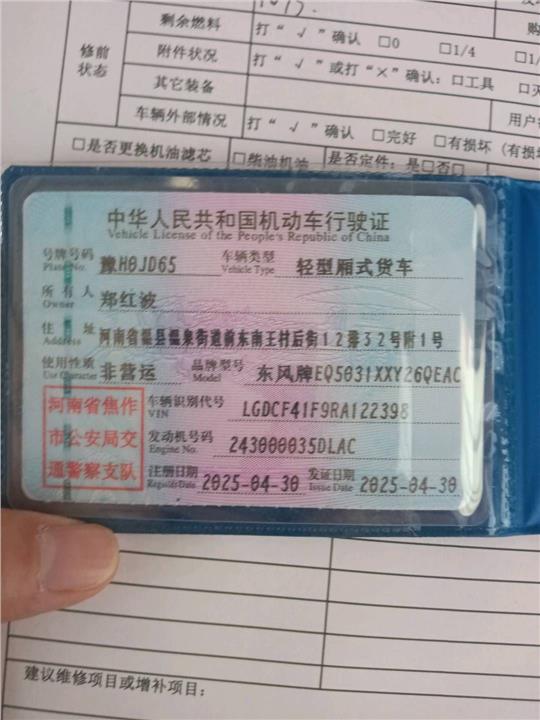 剩余燃料 打“√”确认 □0 □1/4
修前状态
附件状况 打“√”或打“×”确认：□工具
其它装备
车辆外部情况 打“√”确认 □完好 □有损坏（有损
用户
□是否更换机油滤芯 □柴油机油 是否定件：是□否□
中华人民共和国机动车行驶证
Vehicle License of the People's Republic of China
号牌号码 豫H0JD65 车辆类型 轻型厢式货车
Plate No. Vehicle Type
所有人 郑红波
Owner
住址 河南省温县温泉街道前东南王村后街12排32号附1号
Address
使用性质 非营运 品牌型号 东风牌EQ5031XXY26QEAC
Use Character Model
河南省焦作
市公安局交
通警察支队
车辆识别代号 LGDCF41F9RA122398
VIN
发动机号码 243000035DLAC
Engine No.
注册日期 2025-04-30 发证日期 2025-04-30
Register Date Issue Date
建议维修项目或增补项目：